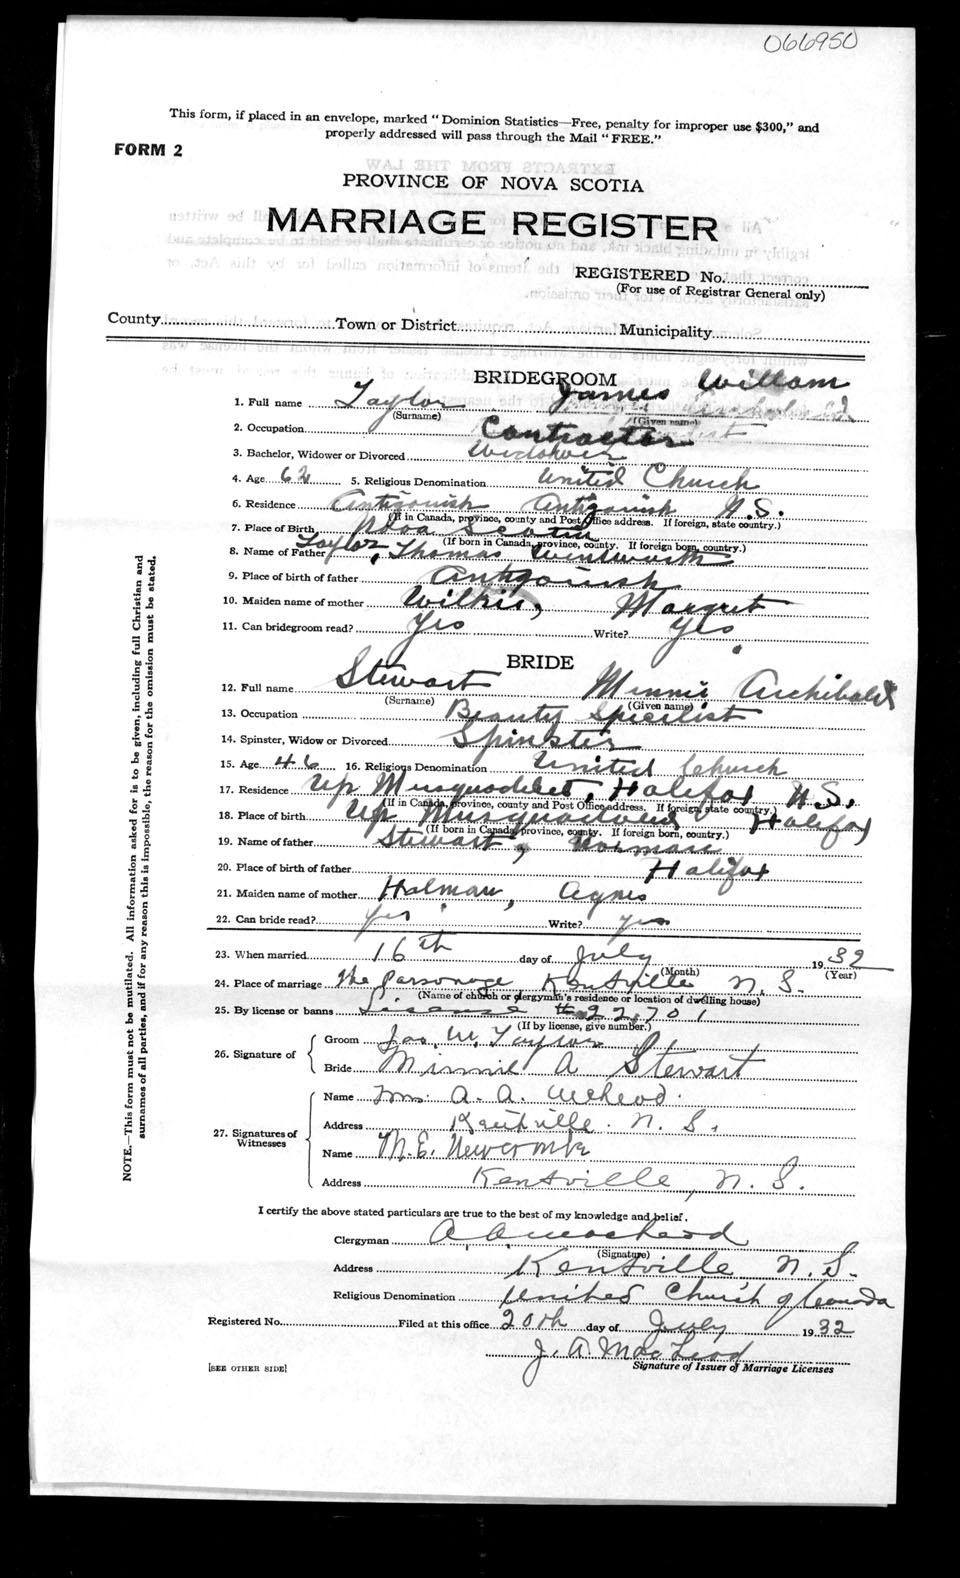 066950
This form, if placed in an envelope, marked "Dominion Statistics—Free, penalty for improper use $300," and
properly addressed will pass through the Mail "FREE."
FORM 2
PROVINCE OF NOVA SCOTIA
MARRIAGE REGISTER
REGISTERED No.
(For use of Registrar General only)
County Town or District Municipality
BRIDEGROOM
1. Full name Taylor James William
(Surname) (Given name)
2. Occupation Contractor
3. Bachelor, Widower or Divorced Widower
4. Age 62 5. Religious Denomination United Church
6. Residence Antigonish Antigonish N.S.
(If in Canada, province, county and Post Office address. If foreign, state country.)
7. Place of Birth Nova Scotia
(If born in Canada, province, county. If foreign born, country.)
8. Name of Father Taylor, Thomas Wentworth
9. Place of birth of father Antigonish
10. Maiden name of mother Wilkie, Margret
11. Can bridegroom read? Yes Write? Yes
BRIDE
12. Full name Stewart Minnie Archibald
(Surname) (Given name)
13. Occupation Beauty Specilist
14. Spinster, Widow or Divorced Spinster
15. Age 46 16. Religious Denomination United Church
17. Residence Up Musquodobit, Halifax N.S.
(If in Canada, province, county and Post Office address. If foreign, state country.)
18. Place of birth Up Halifax
(If born in Canada, province, county. If foreign born, country.)
19. Name of father Stewart, Norman
20. Place of birth of father Halifax
21. Maiden name of mother Holman, Agnes
22. Can bride read? Yes Write? yes
23. When married 16th day of July 1932
(Month) (Year)
24. Place of marriage The Parsonage Kentville N.S.
(Name of church or clergyman's residence or location of dwelling house)
25. By license or banns License # 22701
(If by license, give number.)
26. Signature of Groom Jas. W. Taylor
Bride Minnie A Stewart
27. Signatures of Witnesses
Name Mrs. A. A. McLeod.
Address Kentville. N. S.
Name M. E. Newcombe
Address Kentville, N. S.
I certify the above stated particulars are true to the best of my knowledge and belief.
Clergyman A. A. MacLeod
(Signature)
Address Kentville N. S.
Religious Denomination United Church of Canada
Registered No. Filed at this office 20th day of July 1932
J. A. MacLeod
Signature of Issuer of Marriage Licenses
[SEE OTHER SIDE]
NOTE.—This form must not be mutilated. All information asked for is to be given, including full Christian and
surnames of all parties, and if for any reason this is impossible, the reason for the omission must be stated.